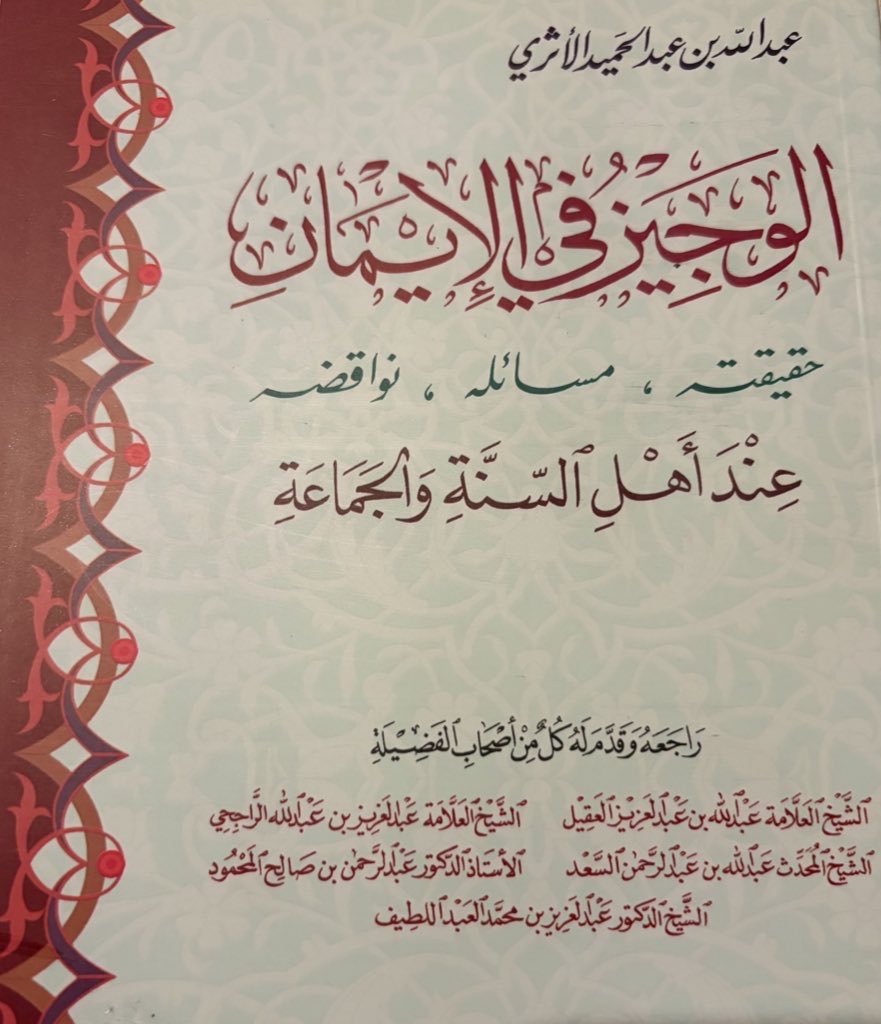 عبد الله بن عبد الحميد الأثري
الوَجِيَزُ في الإِيْمَانِ
حقيقته ، مسائله ، نواقضه
عِنْدَ أَهْلِ السّنَّةِ وَالجَمَاعَةِ
رَاجَعَهُ وَقَدَّمَ لَهُ كُلٌّ مِنْ أَصْحَابِ الفَضِيلَةِ
الشَّيْخ العَلَّامَة عَبْد الله بن عَبْد العَزِيز العَقِيل الشَّيْخ العَلَّامَة عَبْد العَزِيز بن عَبْد الله الرَّاجحِي
الشَّيْخ المُحَدِّث عَبْد الله بن عَبْد الرَّحمن السَّعْد الأُسْتَاذ الدكتور عَبْد الرَّحمن بن صَالِح المَحْمُود
الشَّيْخ الدكتور عَبْد العَزِيز بن محمَّد العَبْد اللطِيف